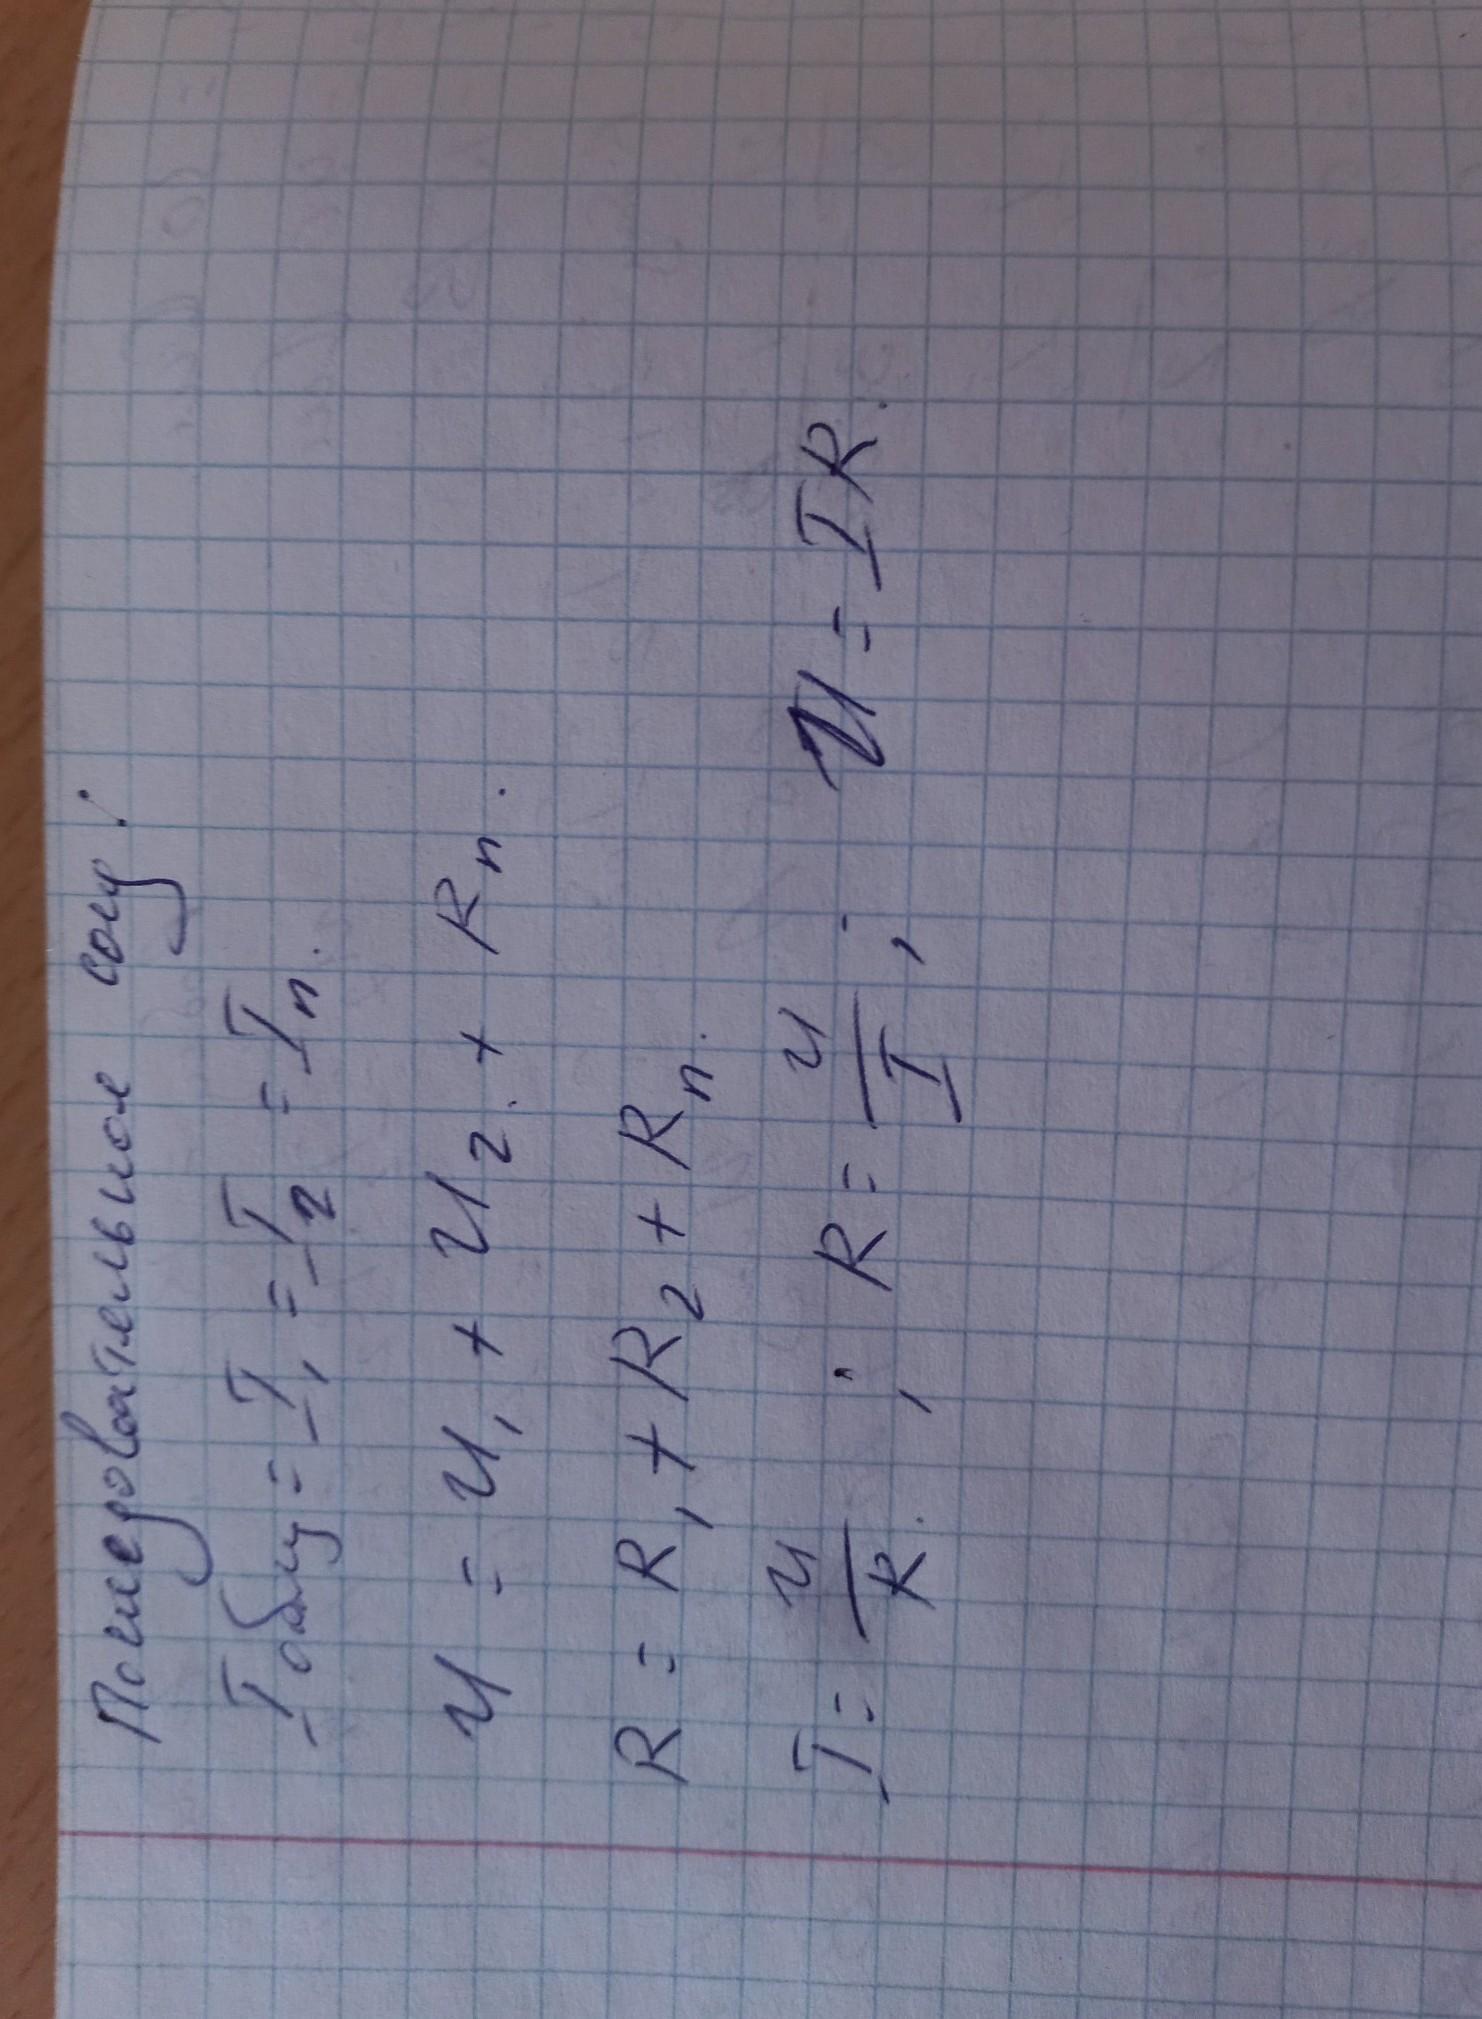 Последовательное соед:
Iобщ = I₁ = I₂ = In.
U = U₁ + U₂ + Rn.
R = R₁ + R₂ + Rn.
I = U/R ; R = U/I ; U = IR.